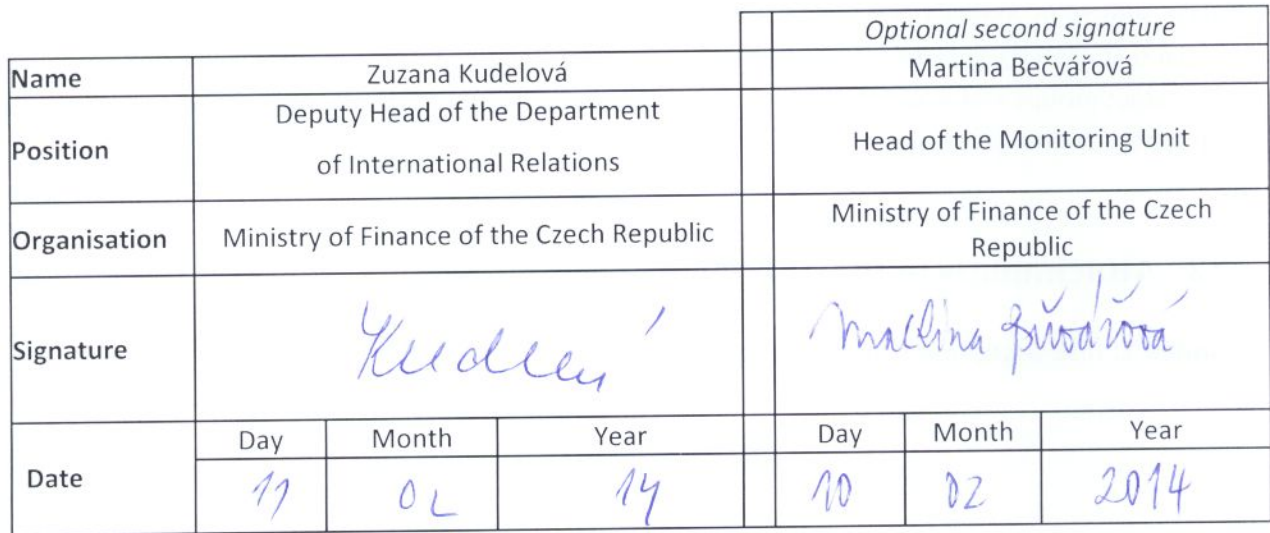 Optional second signature
Name Zuzana Kudelová Martina Bečvářová
Position Deputy Head of the Department of International Relations Head of the Monitoring Unit
Organisation Ministry of Finance of the Czech Republic Ministry of Finance of the Czech Republic
Signature Martina Bečvářová
Date Day Month Year Day Month Year
11 02 14 10 02 2014